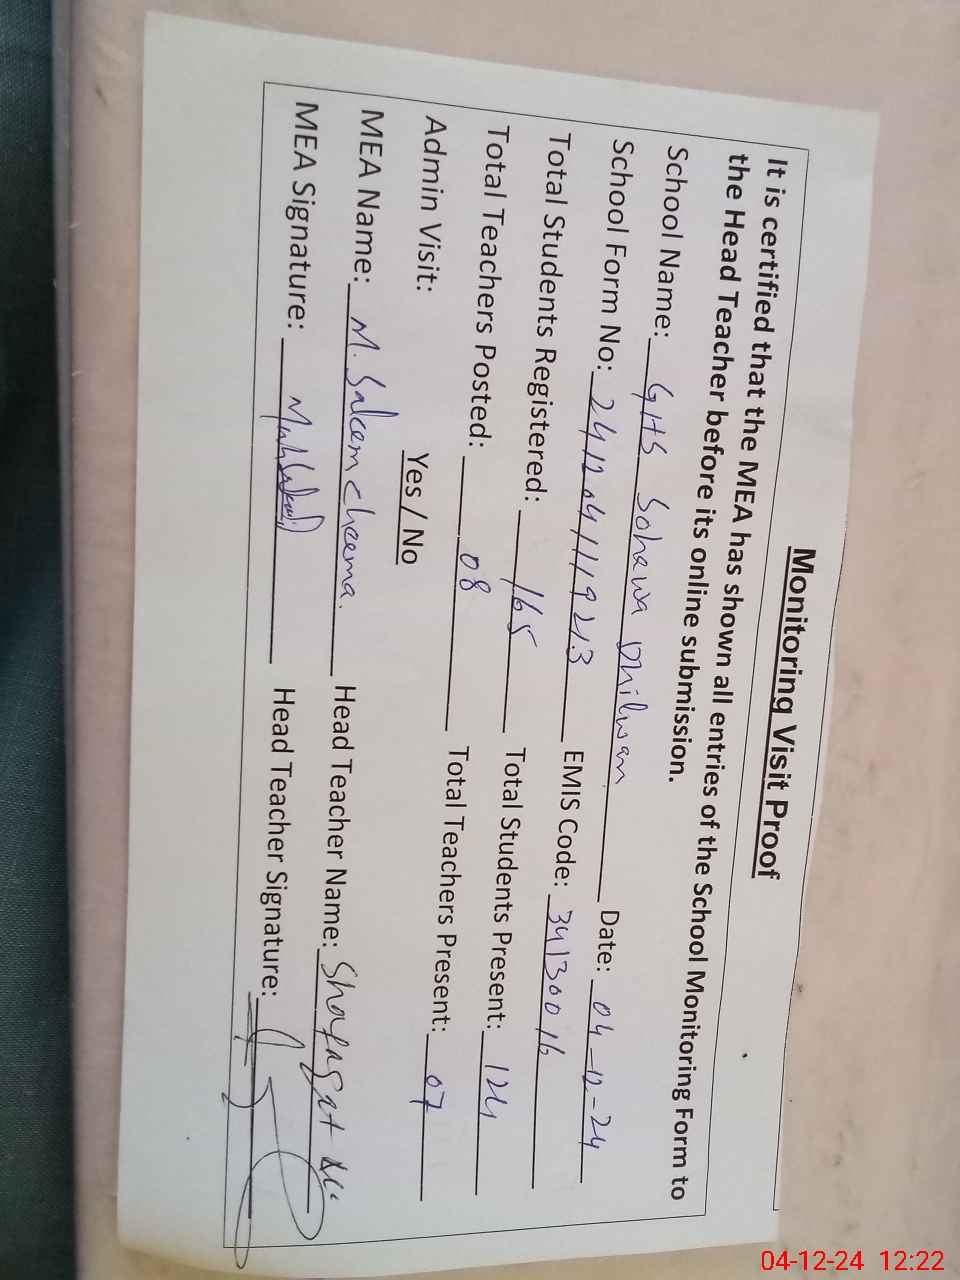 Monitoring Visit Proof
It is certified that the MEA has shown all entries of the School Monitoring Form to
the Head Teacher before its online submission.
School Name: GHS Sohawa Dhilwan Date: 04-12-24
School Form No: 2412041119213 EMIS Code: 34130016
Total Students Registered: 165 Total Students Present: 124
Total Teachers Posted: 08 Total Teachers Present: 07
Admin Visit: Yes / No
MEA Name: M. Saleem Cheema. Head Teacher Name: Shafaqat
MEA Signature: Head Teacher Signature:
04-12-24 12:22